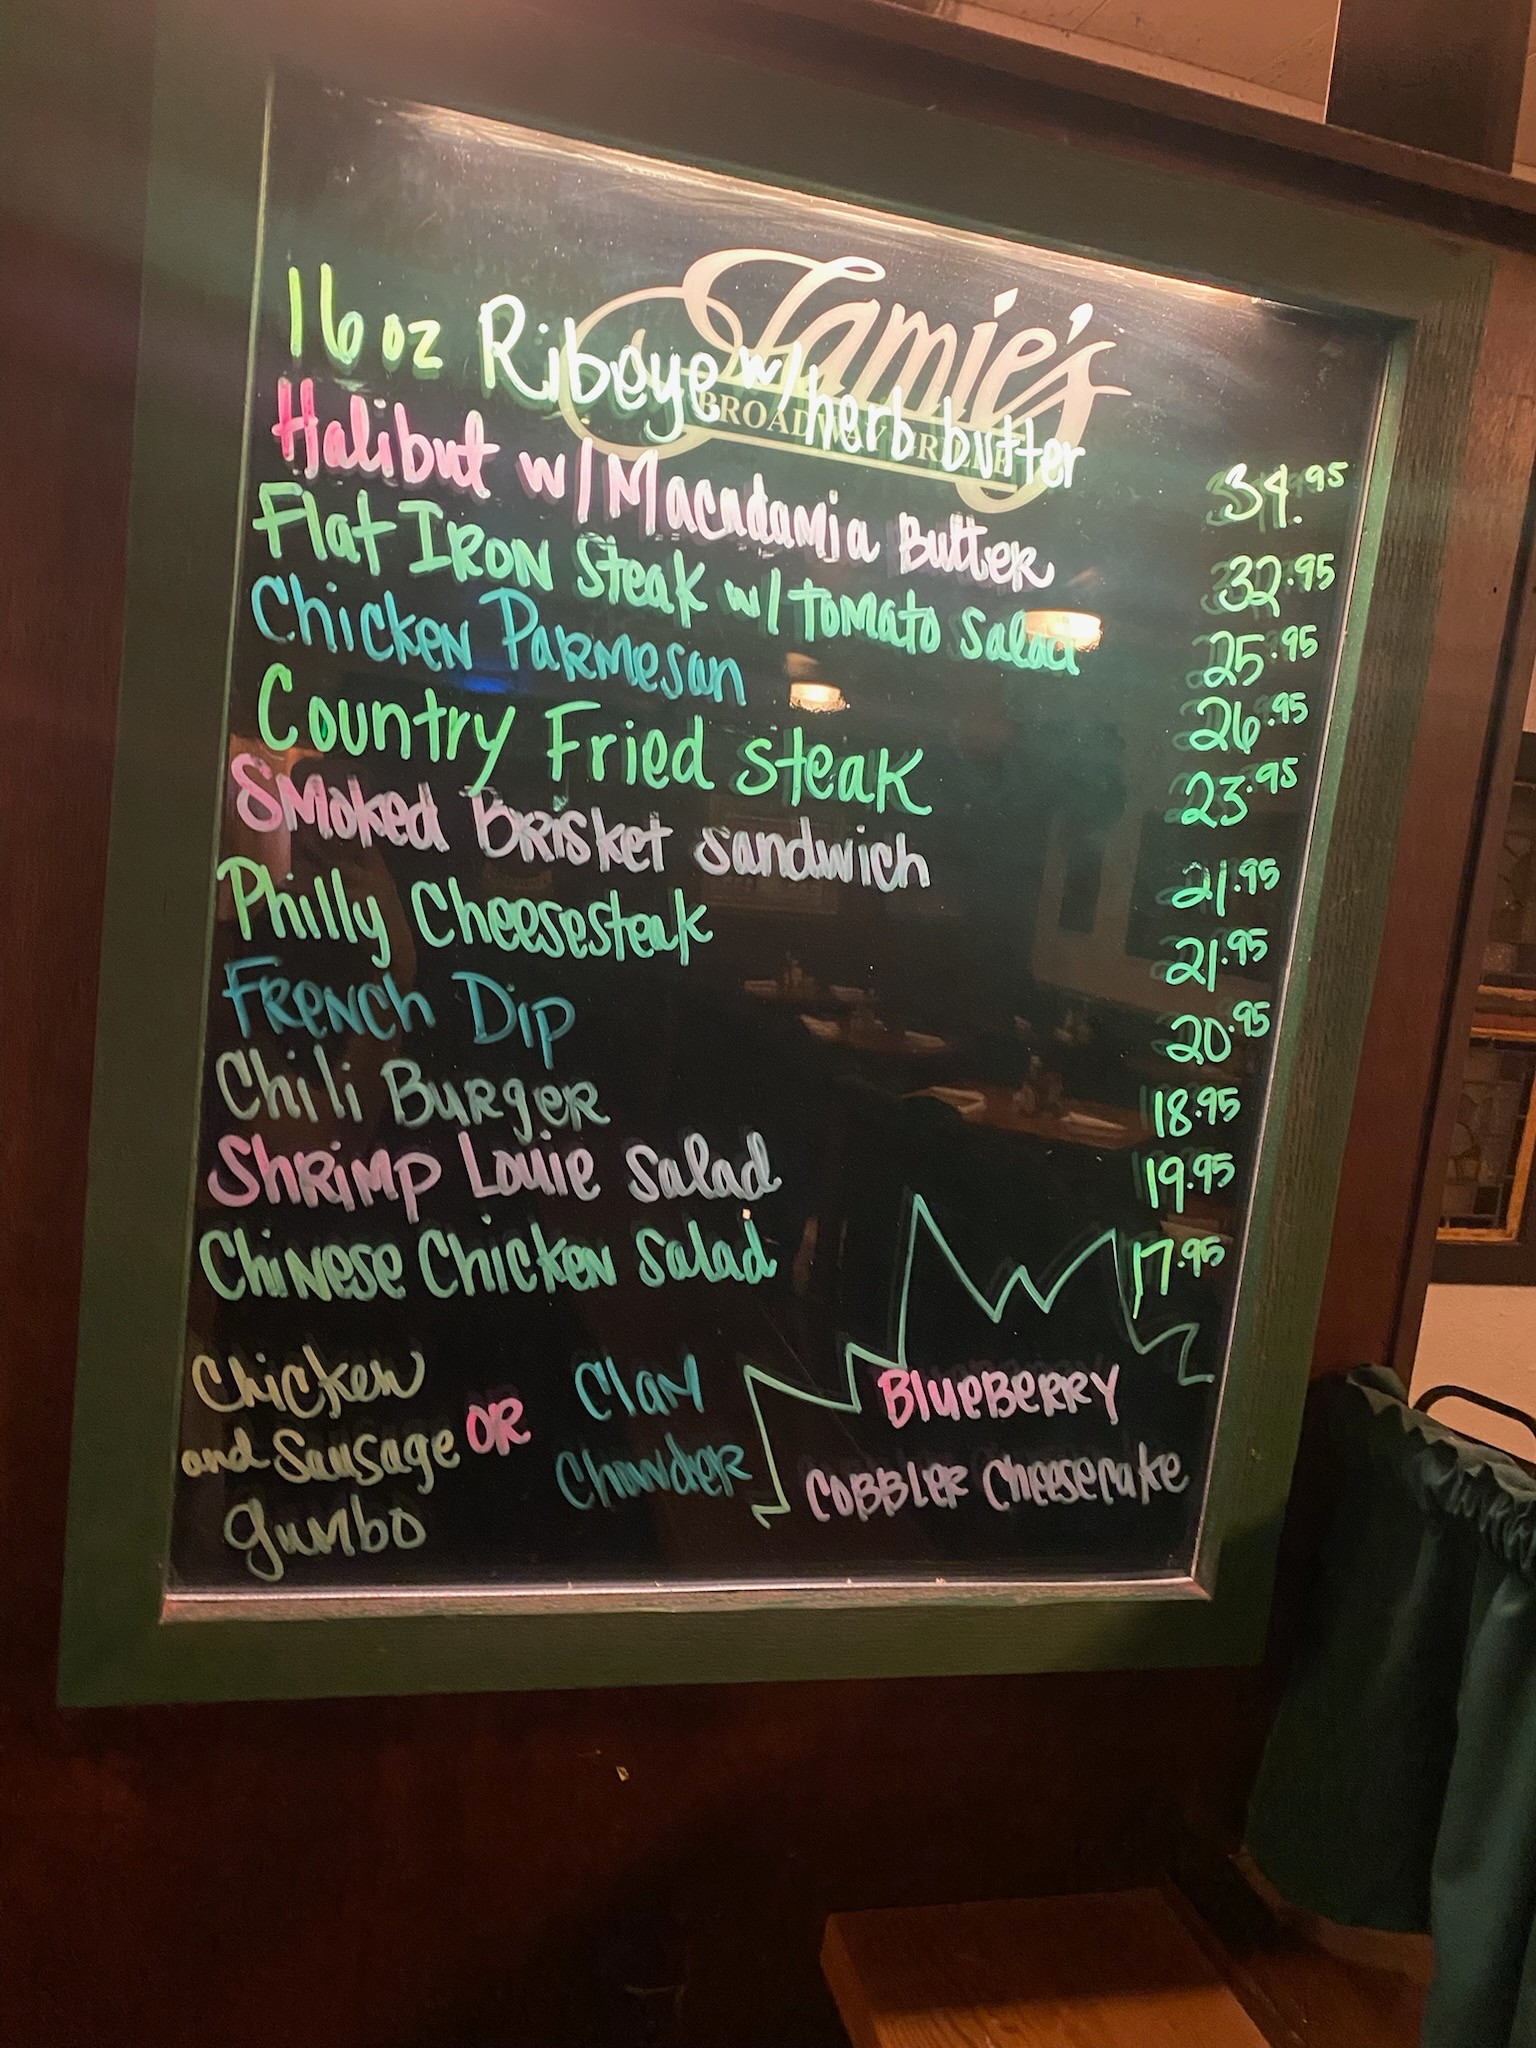 Jamie's
BROADWAY GRILLE
16 oz Ribeye w/ herb butter 34.95
Halibut w/ Macadamia Butter 32.95
Flat IRON Steak w/ Tomato Salad 25.95
Chicken Parmesan 26.95
Country Fried Steak 23.95
Smoked Brisket Sandwich 21.95
Philly Cheesesteak 21.95
French Dip 20.95
Chili Burger 18.95
Shrimp Louie Salad 19.95
Chinese Chicken Salad 17.95
Chicken
and Sausage
gumbo
OR
Clam
Chowder
Blueberry
Cobbler Cheesecake